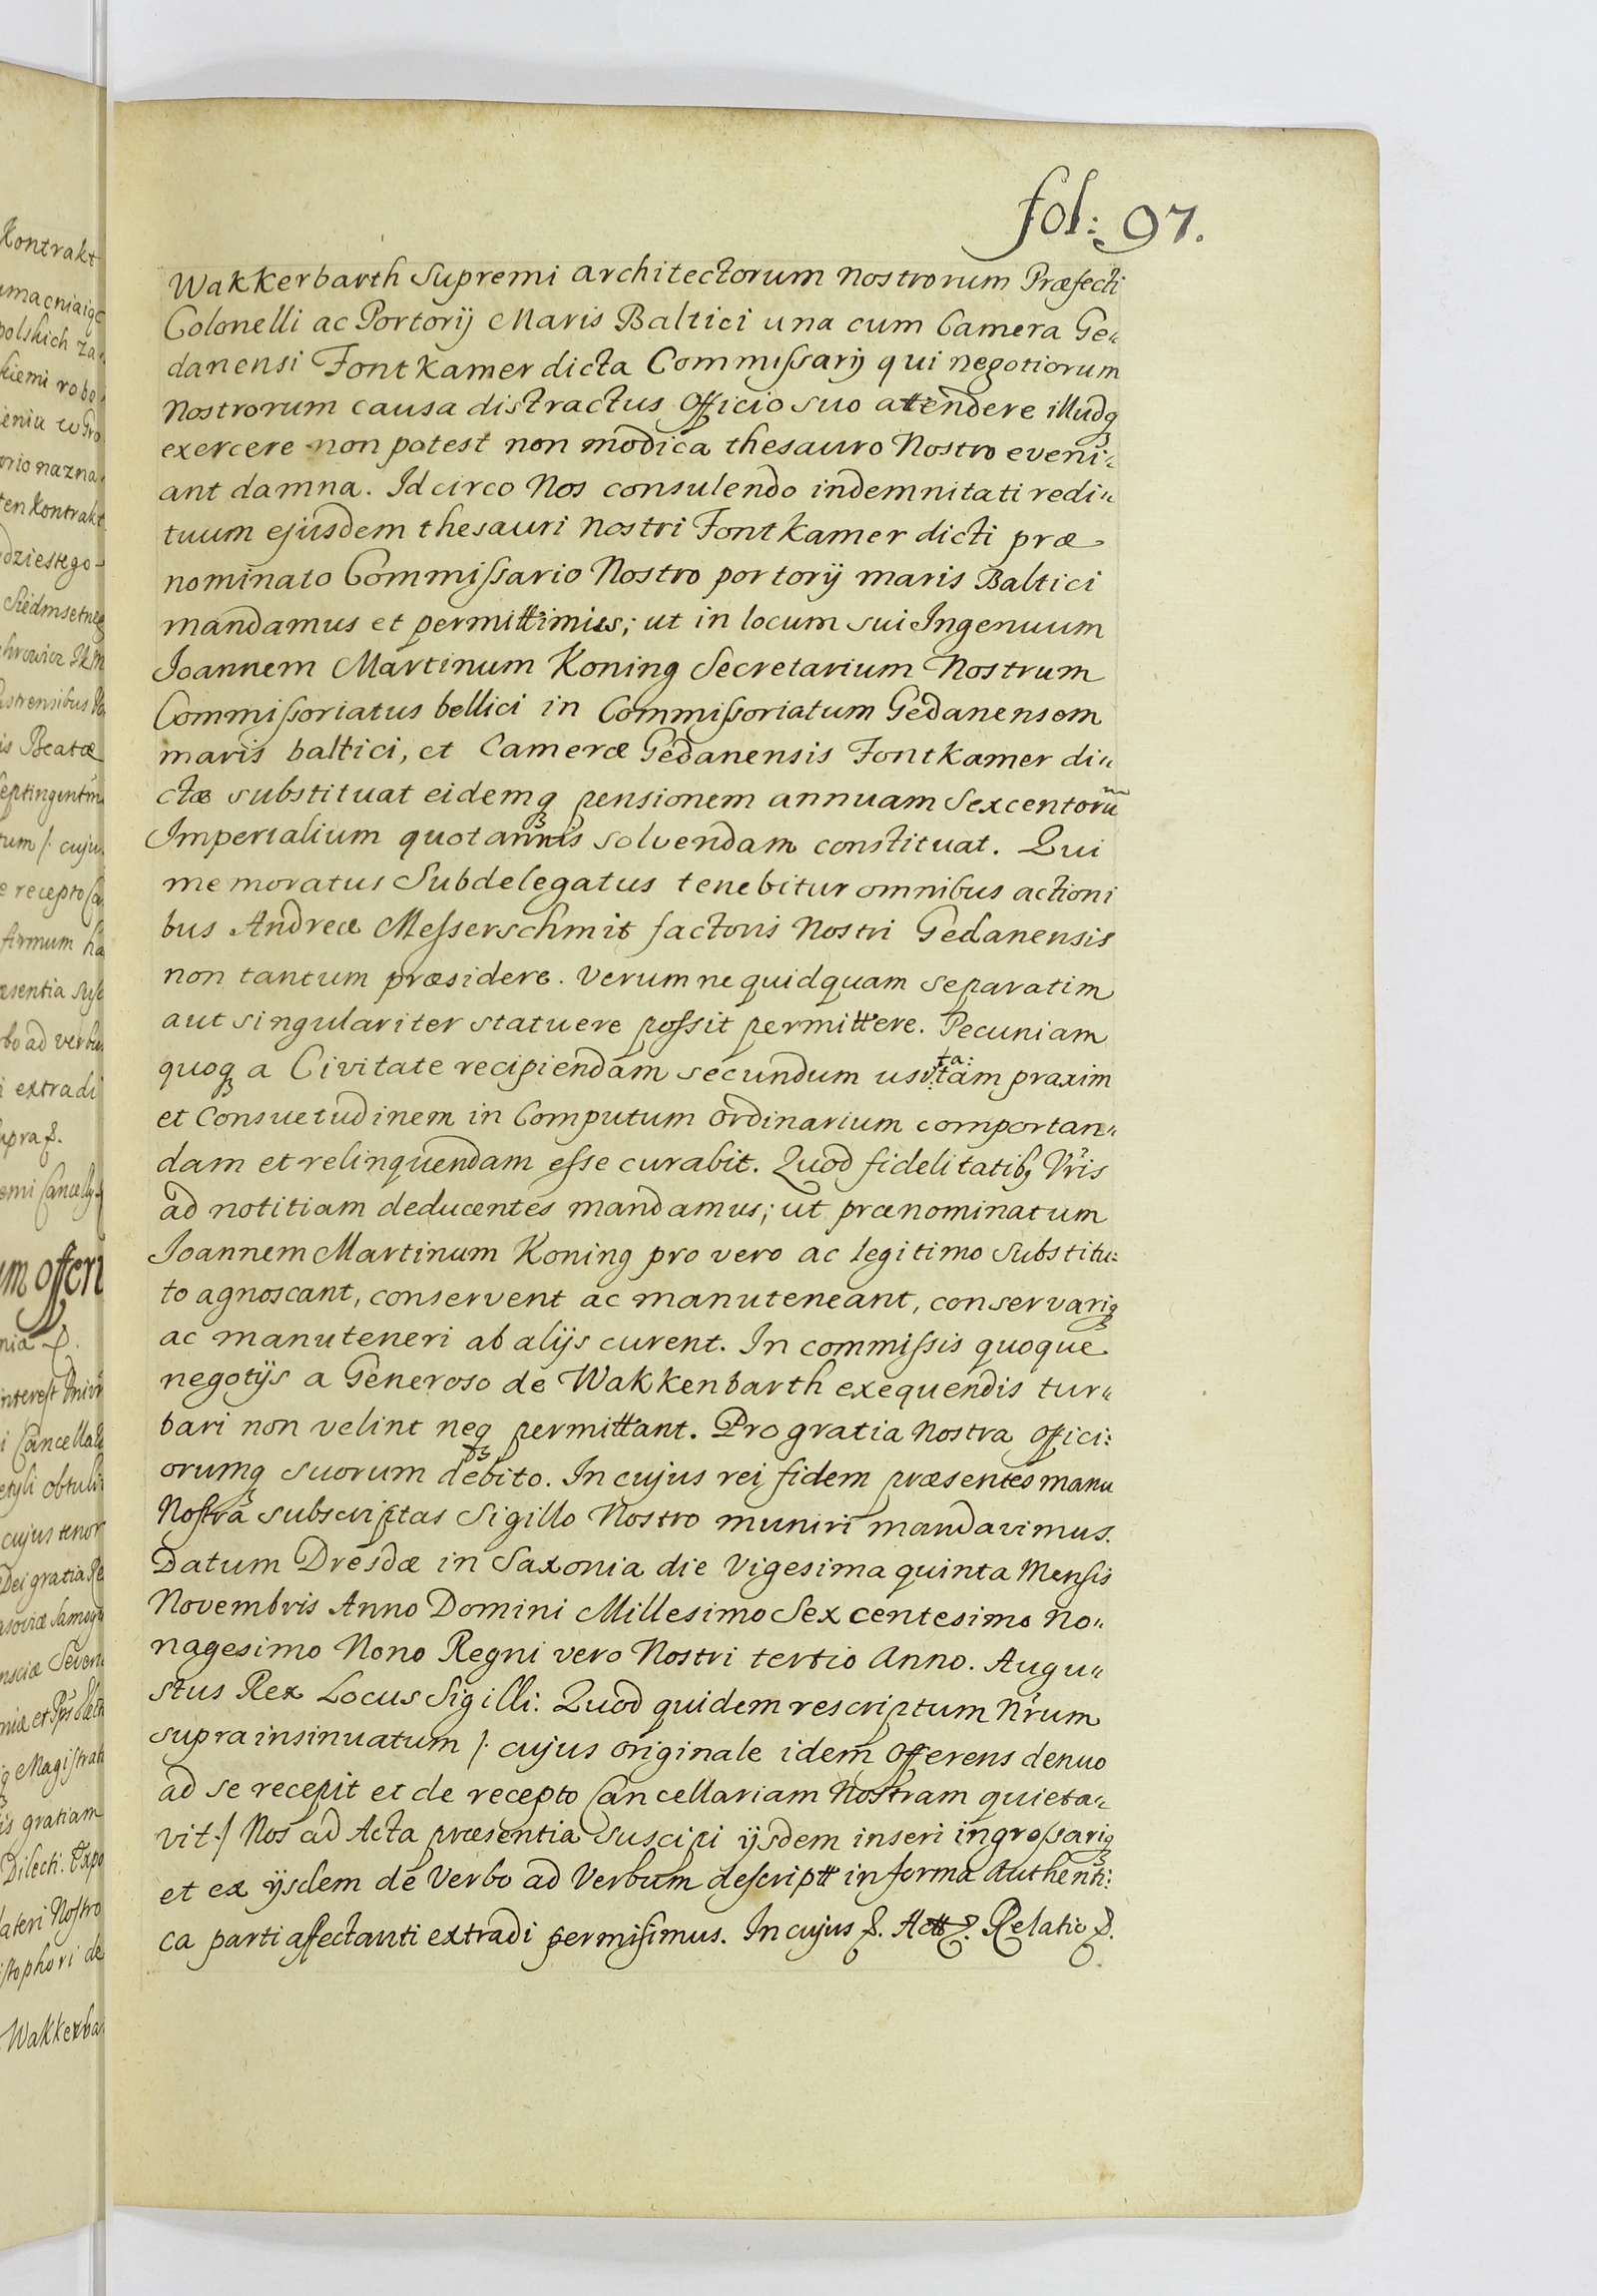 fol: 97.
Wakkerbarth Supremi architectorum nostrorum Præfecti
Colonelli ac Portorij Maris Baltici una cum Camera Ge„
danensi Fontkamer dicta Commiſsarij qui negotiorum
Nostrorum causa distractus Officio suo attendere illudq₃
exercere non potest non modica thesauro Nostro eveni„
ant damna. Idcirco Nos consulendo indemnitati redi„
tuum ejusdem thesauri nostri Fontkamer dicti præ
nominato Commiſsario Nostro portorij maris Baltici
mandamus et permittimus; ut in locum sui Ingenuum
Joannem Martinum Koning Secretarium Nostrum
Commiſsoriatus bellici in Commiſsoriatum Gedanensem
maris baltici, et Cameræ Gedanensis Fontkamer di„
ctæ substituat eidemq₃ pensionem annuam Sexcentorũ
Imperialium quotannis solvendam constituat. Qui
memoratus Subdelegatus tenebitur omnibus actioni
bus Andreæ Meſserschmit factoris Nostri Gedanensis
non tantum præsidere. Verum ne quidquam separatim
aut singulariter statuere poſsit permittere. Pecuniam
quoq₃ a Civitate recipiendam secundum usitatam praxim
et Consuetudinem in Computum Ordinarium comportan„
dam et relinquendam eſse curabit. Quod fidelitatib₃ Vris
ad notitiam deducentes mandamus; ut prænominatum
Joannem Martinum Koning pro vero ac legitimo Substitu:
to agnoscant, conservent ac manuteneant, conservariq₃
ac manuteneri ab alijs curent. In commiſsis quoque
negotijs a Generoso de Wakkenbarth exequendis tur„
bari non velint neq₃ permittant. Pro gratia Nostra Offici:
orumq₃ suorum debito. In cujus rei fidem præsentes manu
Noſtra subscriptas Sigillo Nostro muniri mandavimus.
Datum Dresdæ in Saxonia die Vigesima quinta Menſis
Novembris Anno Domini Millesimo Sexcentesimo No„
nagesimo Nono Regni vero Nostri tertio Anno. Augu„
stus Rex Locus Sigilli. Quod quidem rescriptum Nrum
supra insinuatum /: cujus originale idem Offerens denuo
ad se recepit et de recepto Cancellariam Nostram quieta„
vit :/ Nos ad Acta præsentia suscipi ijsdem inseri ingroſsariq₃
et ex ijsdem de Verbo ad Verbum deſcriptt in forma Authenti:
ca parti affectanti extradi permiſimus. In cujus &. Actt &. Relatio &.